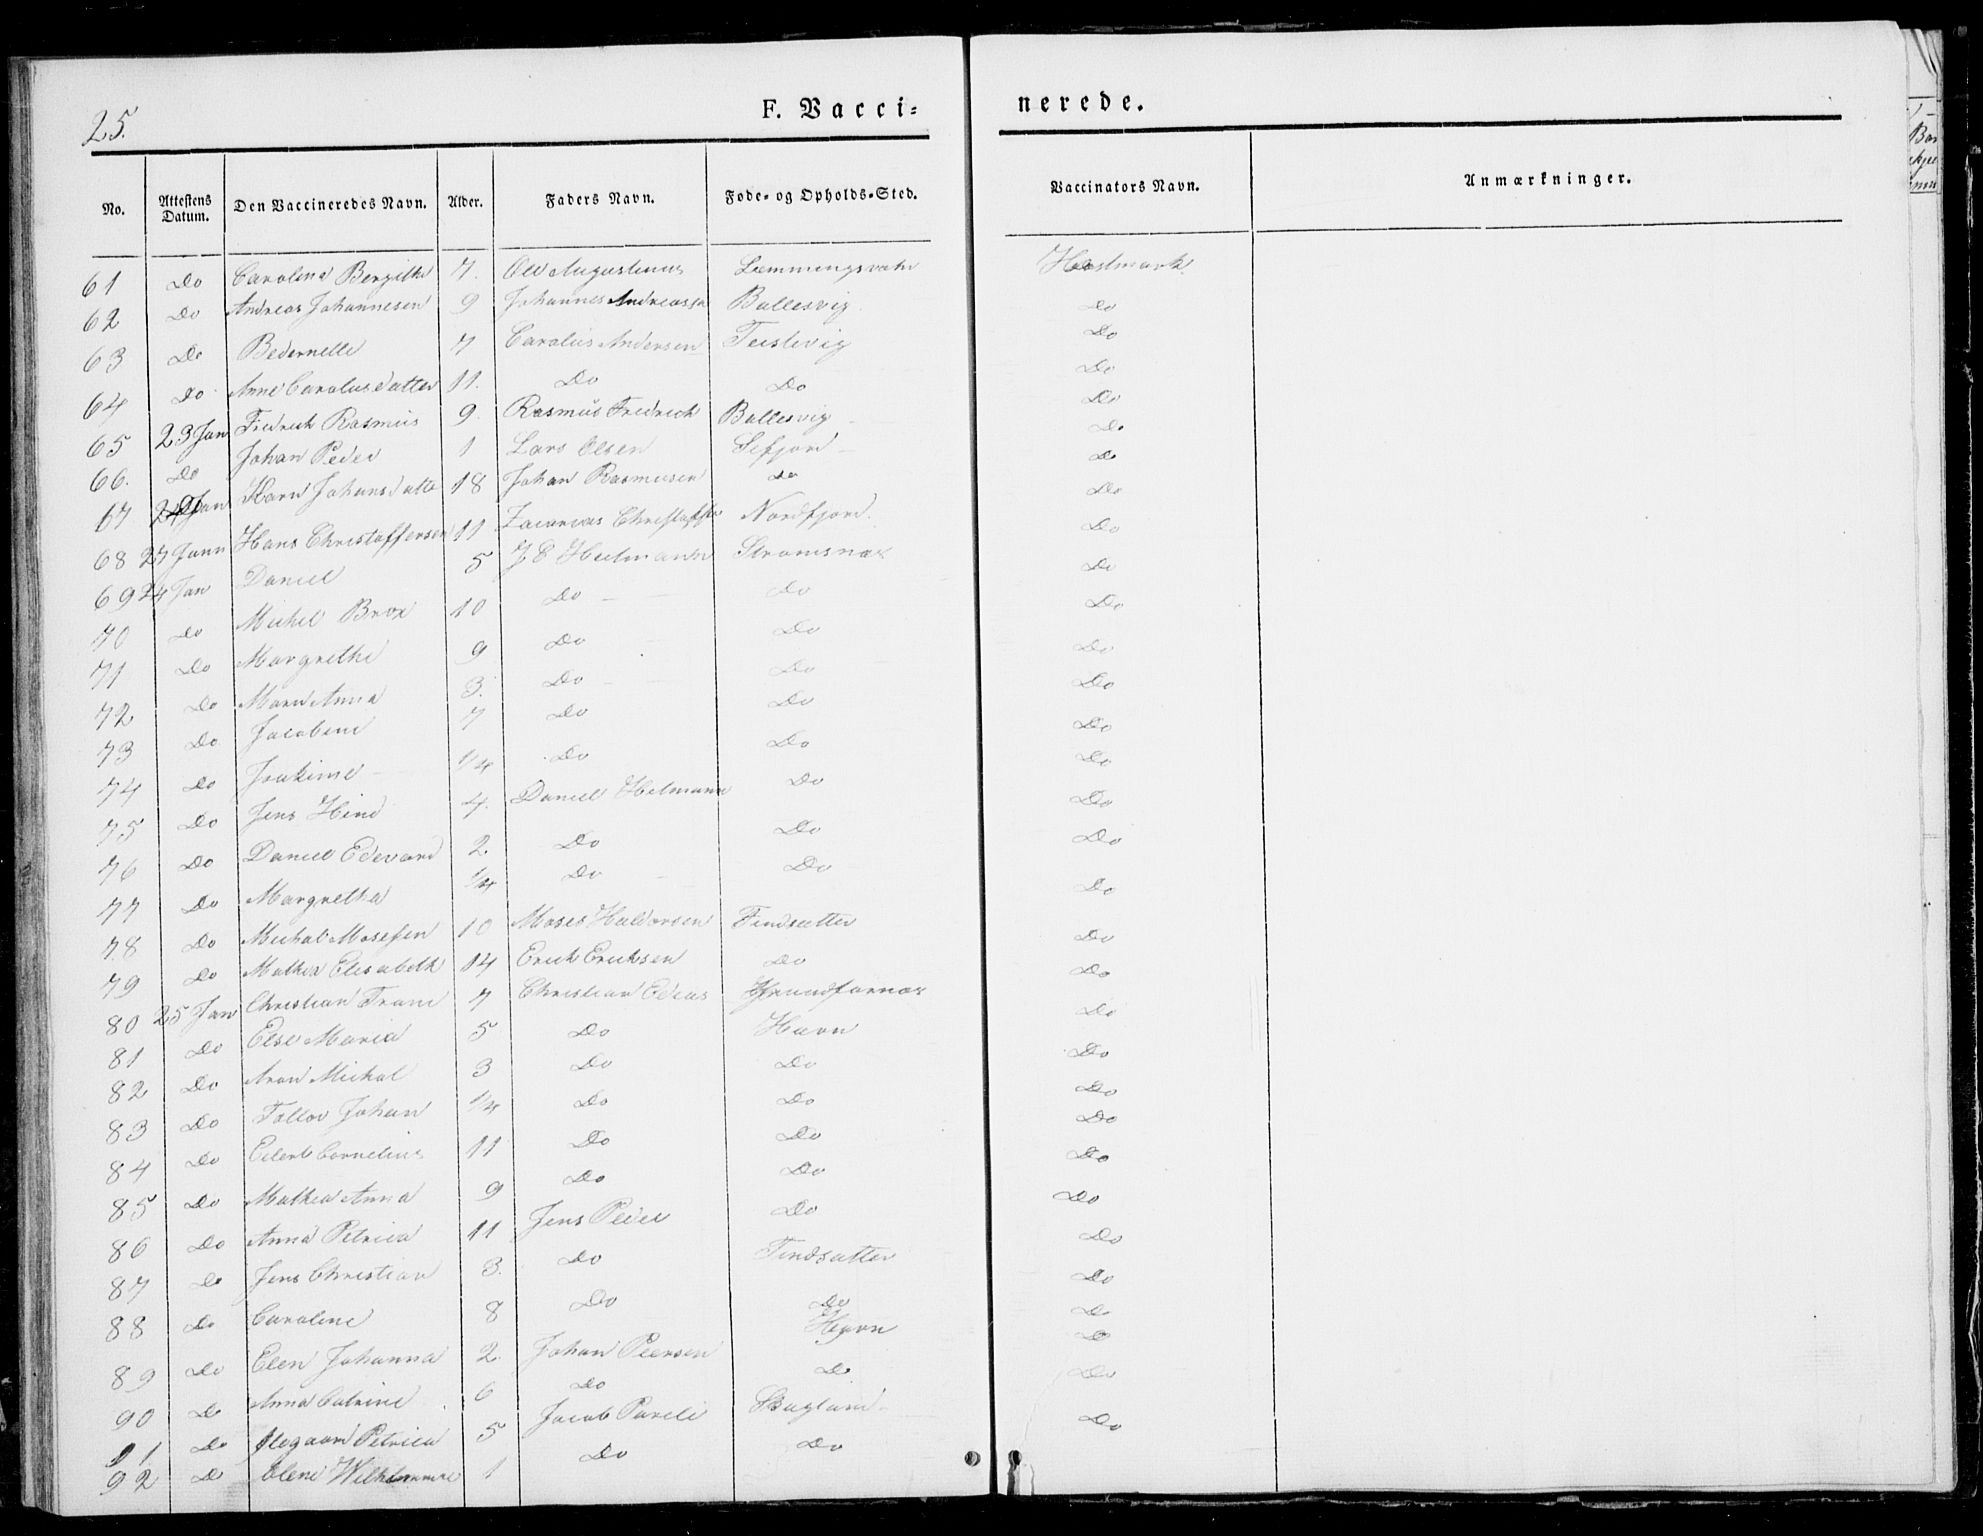 25.
F. Vacci=
nerede.
No. Attestens Datum. Den Vaccineredes Navn. Alder. Faders Navn. Føde= og Opholds=Sted. Vaccinators Navn. Anmærkninger.
61 Do Carolina Bergithe 7. Ole Augustinus Lemmingsvatn Hostmark
62 Do Andreas Johannesen 9 Johannes Andreassen Ballesvig Do
63 Do Bedernelle 7 Carolus Andersen Teistevig Do
64 Do Anne Carolusdatter 11. Do Do Do
65 23 Jan Fredrick Rasmus 9. Rasmus Fredrick Ballesvig Do
66. Do Johan Peder 1 Lars Olsen Sifjord Do
67 Jan Karn Johansdatte 18 Johan Rasmusen Do Do
68 27 Jann Hans Christoffersen 11 Zacarias Christoffer Nordfjord. Do
69 24 Jan Daniel 5 J E Helmann Stromsnæs Do
70 Do Michel Brox 10 Do Do Do
71 Do Margrethe 9 Do Do Do
72 Do Maren Anna 3. Do Do Do
73 Do Jacobine 7 Do Do Do
74 Do Joakime 1/4 Do Do Do
75 Do Jens Hind 4. Daniel Helmann Do Do
76 Do Daniel Edevard 2. Do Do Do
77 Do Margretha 1/4 Do Do Do
78 Do Michal Mosesen 10 Moses Haldorsen Findsætter Do
79 Do Mathea Elisabeth 14 Erick Ericksen Do Do
80 25 Jan Christian Trane 7 Christian Edeas Grundfarnæs Do
81 Do Else Maria 5 Do Havn Do
82 Do Aron Michal 3 Do Do Do
83 Do Tollev Johan 1/4 Do Do Do
84 Do Eilert Cornelius 11 Do Do Do
85 Do Mathea Anna 9 Do Do Do
86 Do Anna Petrica 11 Jens Peder Do Do
87 Do Jens Christian 3. Do Findsætter Do
88 Do Caroline 8 Do Do Do
89 Do Elen Johanna 2. Johan Peersen Havn Do
90 Do Anna Catrine 6 Do Do Do
91 Do Petrica 5 Jacob Pareli Skagland Do
92 Do Elene Wilhelmine 1 Do Do